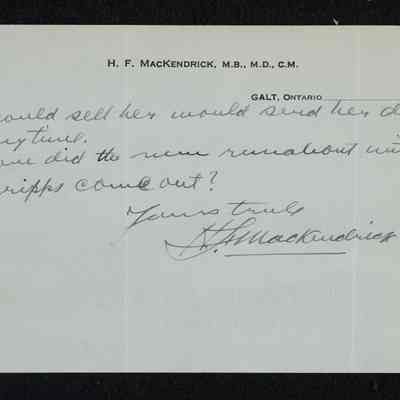 H. F. MacKendrick, M.B., M.D., C.M.
Galt, Ontario
would sell her would send her
anytime.
did the new runabout
cripps come out?
Yours truly
H F MacKendrick